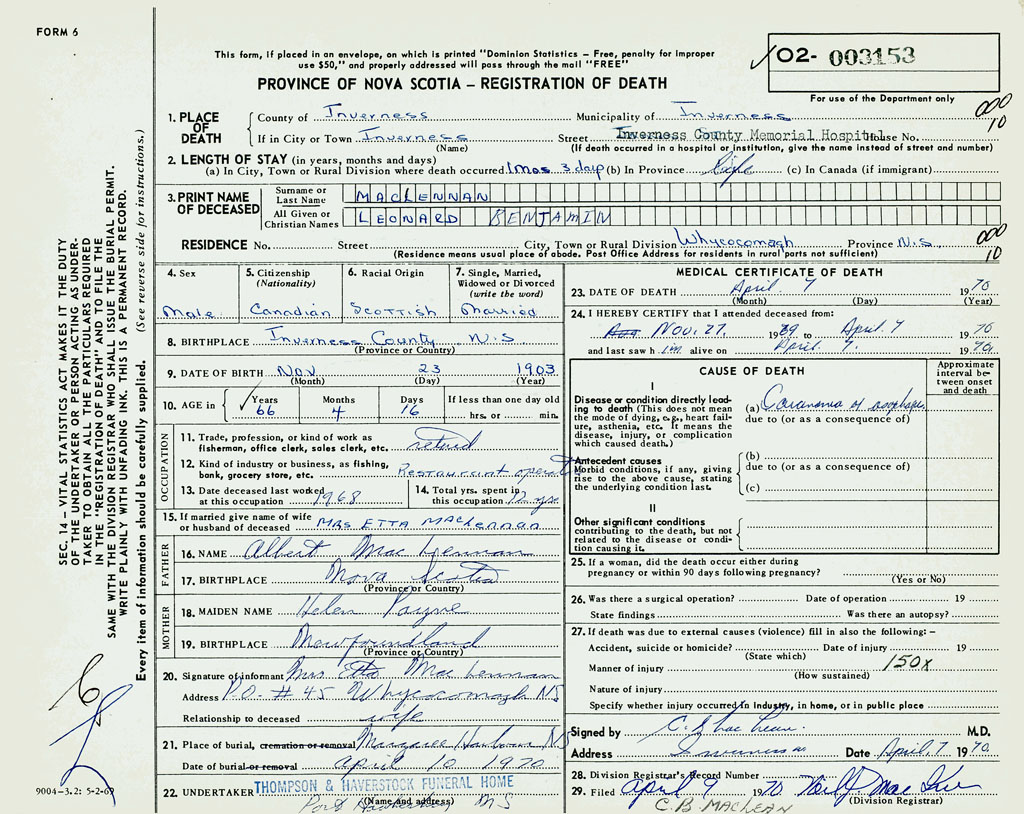 FORM 6
This form, if placed in an envelope, on which is printed "Dominion Statistics – Free, penalty for improper
use $50," and properly addressed will pass through the mail "FREE"
PROVINCE OF NOVA SCOTIA – REGISTRATION OF DEATH
✓ 02- 003153
For use of the Department only
000
10
1. PLACE OF DEATH
County of Inverness Municipality of Inverness
If in City or Town Inverness Street Inverness County Memorial Hospital House No.
(Name) (If death occurred in a hospital or institution, give the name instead of street and number)
2. LENGTH OF STAY (in years, months and days)
(a) In City, Town or Rural Division where death occurred 1 mos 3 days (b) In Province Life (c) In Canada (if immigrant)
3. PRINT NAME OF DECEASED
Surname or Last Name MACLENNAN
All Given or Christian Names LEONARD BENJAMIN
RESIDENCE No. Street City, Town or Rural Division Whycocomagh Province N.S.
(Residence means usual place of abode. Post Office Address for residents in rural parts not sufficient)
000
10
4. Sex Male
5. Citizenship (Nationality) Canadian
6. Racial Origin Scottish
7. Single, Married, Widowed or Divorced (write the word) Married
8. BIRTHPLACE Inverness County N.S
(Province or Country)
9. DATE OF BIRTH Nov 23 1903
(Month) (Day) (Year)
10. AGE in Years 66 Months 4 Days 16 If less than one day old hrs. or min.
OCCUPATION
11. Trade, profession, or kind of work as fisherman, office clerk, sales clerk, etc. retired
12. Kind of industry or business, as fishing, bank, grocery store, etc. Restaurant
13. Date deceased last worked at this occupation 1968
14. Total yrs. spent in this occupation 12 yrs
15. If married give name of wife or husband of deceased MRS ETTA MACLennan
FATHER
16. NAME Albert MacLennan
17. BIRTHPLACE Nova Scotia
(Province or Country)
MOTHER
18. MAIDEN NAME Helen Payne
19. BIRTHPLACE Newfoundland
(Province or Country)
20. Signature of informant Mrs Etta MacLennan
Address P.O. #45 Whycocomagh NS
Relationship to deceased wife
21. Place of burial, cremation or removal Margaree Harbour NS
Date of burial or removal April 10 1970
22. UNDERTAKER THOMPSON & HAVERSTOCK FUNERAL HOME
(Name and address)
Port Hawkesbury NS
MEDICAL CERTIFICATE OF DEATH
23. DATE OF DEATH April 7 1970
(Month) (Day) (Year)
24. I HEREBY CERTIFY that I attended deceased from:
Nov. 27, 1969 to April 7 1970
and last saw him alive on April 7. 1970
CAUSE OF DEATH
Approximate interval between onset and death
I
Disease or condition directly leading to death (This does not mean the mode of dying, e.g., heart failure, asthenia, etc. It means the disease, injury, or complication which caused death.)
(a) Carcinoma of
due to (or as a consequence of)
Antecedent causes
Morbid conditions, if any, giving rise to the above cause, stating the underlying condition last.
(b)
due to (or as a consequence of)
(c)
II
Other significant conditions contributing to the death, but not related to the disease or condition causing it.
25. If a woman, did the death occur either during pregnancy or within 90 days following pregnancy?
(Yes or No)
26. Was there a surgical operation? Date of operation 19
State findings Was there an autopsy?
27. If death was due to external causes (violence) fill in also the following: –
Accident, suicide or homicide? Date of injury 19
(State which)
Manner of injury 150X
(How sustained)
Nature of injury
Specify whether injury occurred in industry, in home, or in public place
Signed by M.D.
Address Inverness Date April 7 1970
28. Division Registrar's Record Number
29. Filed April 9 1970
(Division Registrar)
C.B. MACLEAN
SEC. 14 – VITAL STATISTICS ACT MAKES IT THE DUTY
OF THE UNDERTAKER OR PERSON ACTING AS UNDER-
TAKER TO OBTAIN ALL THE PARTICULARS REQUIRED
IN THE "REGISTRATION OF DEATH" AND TO FILE THE
SAME WITH THE DIVISION REGISTRAR WHO SHALL ISSUE THE BURIAL PERMIT.
WRITE PLAINLY WITH UNFADING INK. THIS IS A PERMANENT RECORD.
Every item of information should be carefully supplied. (See reverse side for instructions.)
9004-3.2: 5-2-69